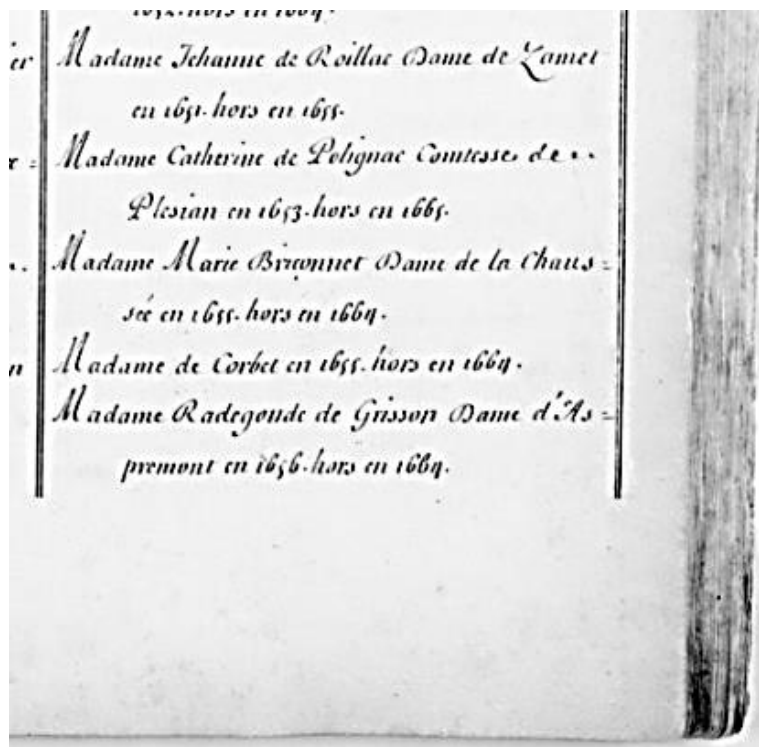 1652. hors en 1664.
er Madame Jehanne de Roillac Dame de Zamet
en 1651. hors en 1655.
Madame Catherine de Polignac Comtesse de
Plesian en 1653. hors en 1665.
Madame Marie Briçonnet Dame de la Chaus=
sée en 1655. hors en 1664.
n Madame de Corbet en 1655. hors en 1664.
Madame Radegonde de Grisson Dame d'As=
premont en 1656. hors en 1664.